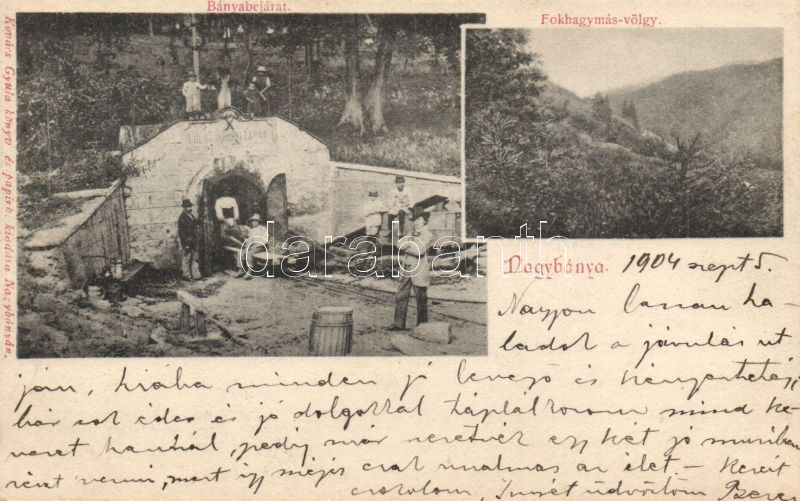 Bányabejárat.
Fokhagymás-völgy.
Kovács Gyula könyv és papirk. kiadása Nagybányán.
darabanth
Nagybánya. 1904 szept 5.
Nagyon lassan ha-
ladok a javulás ut
ján, hiába minden jó levegő és kényeztetés,
bár sok édes és jó dolgokkal táplálkozom mind ke-
veset használ, pedig már szeretnék egy két jó muriban
részt venni, mert így mégis csak unalmas az élet. - Kezeit
csókolom, Imrét üdvözlöm